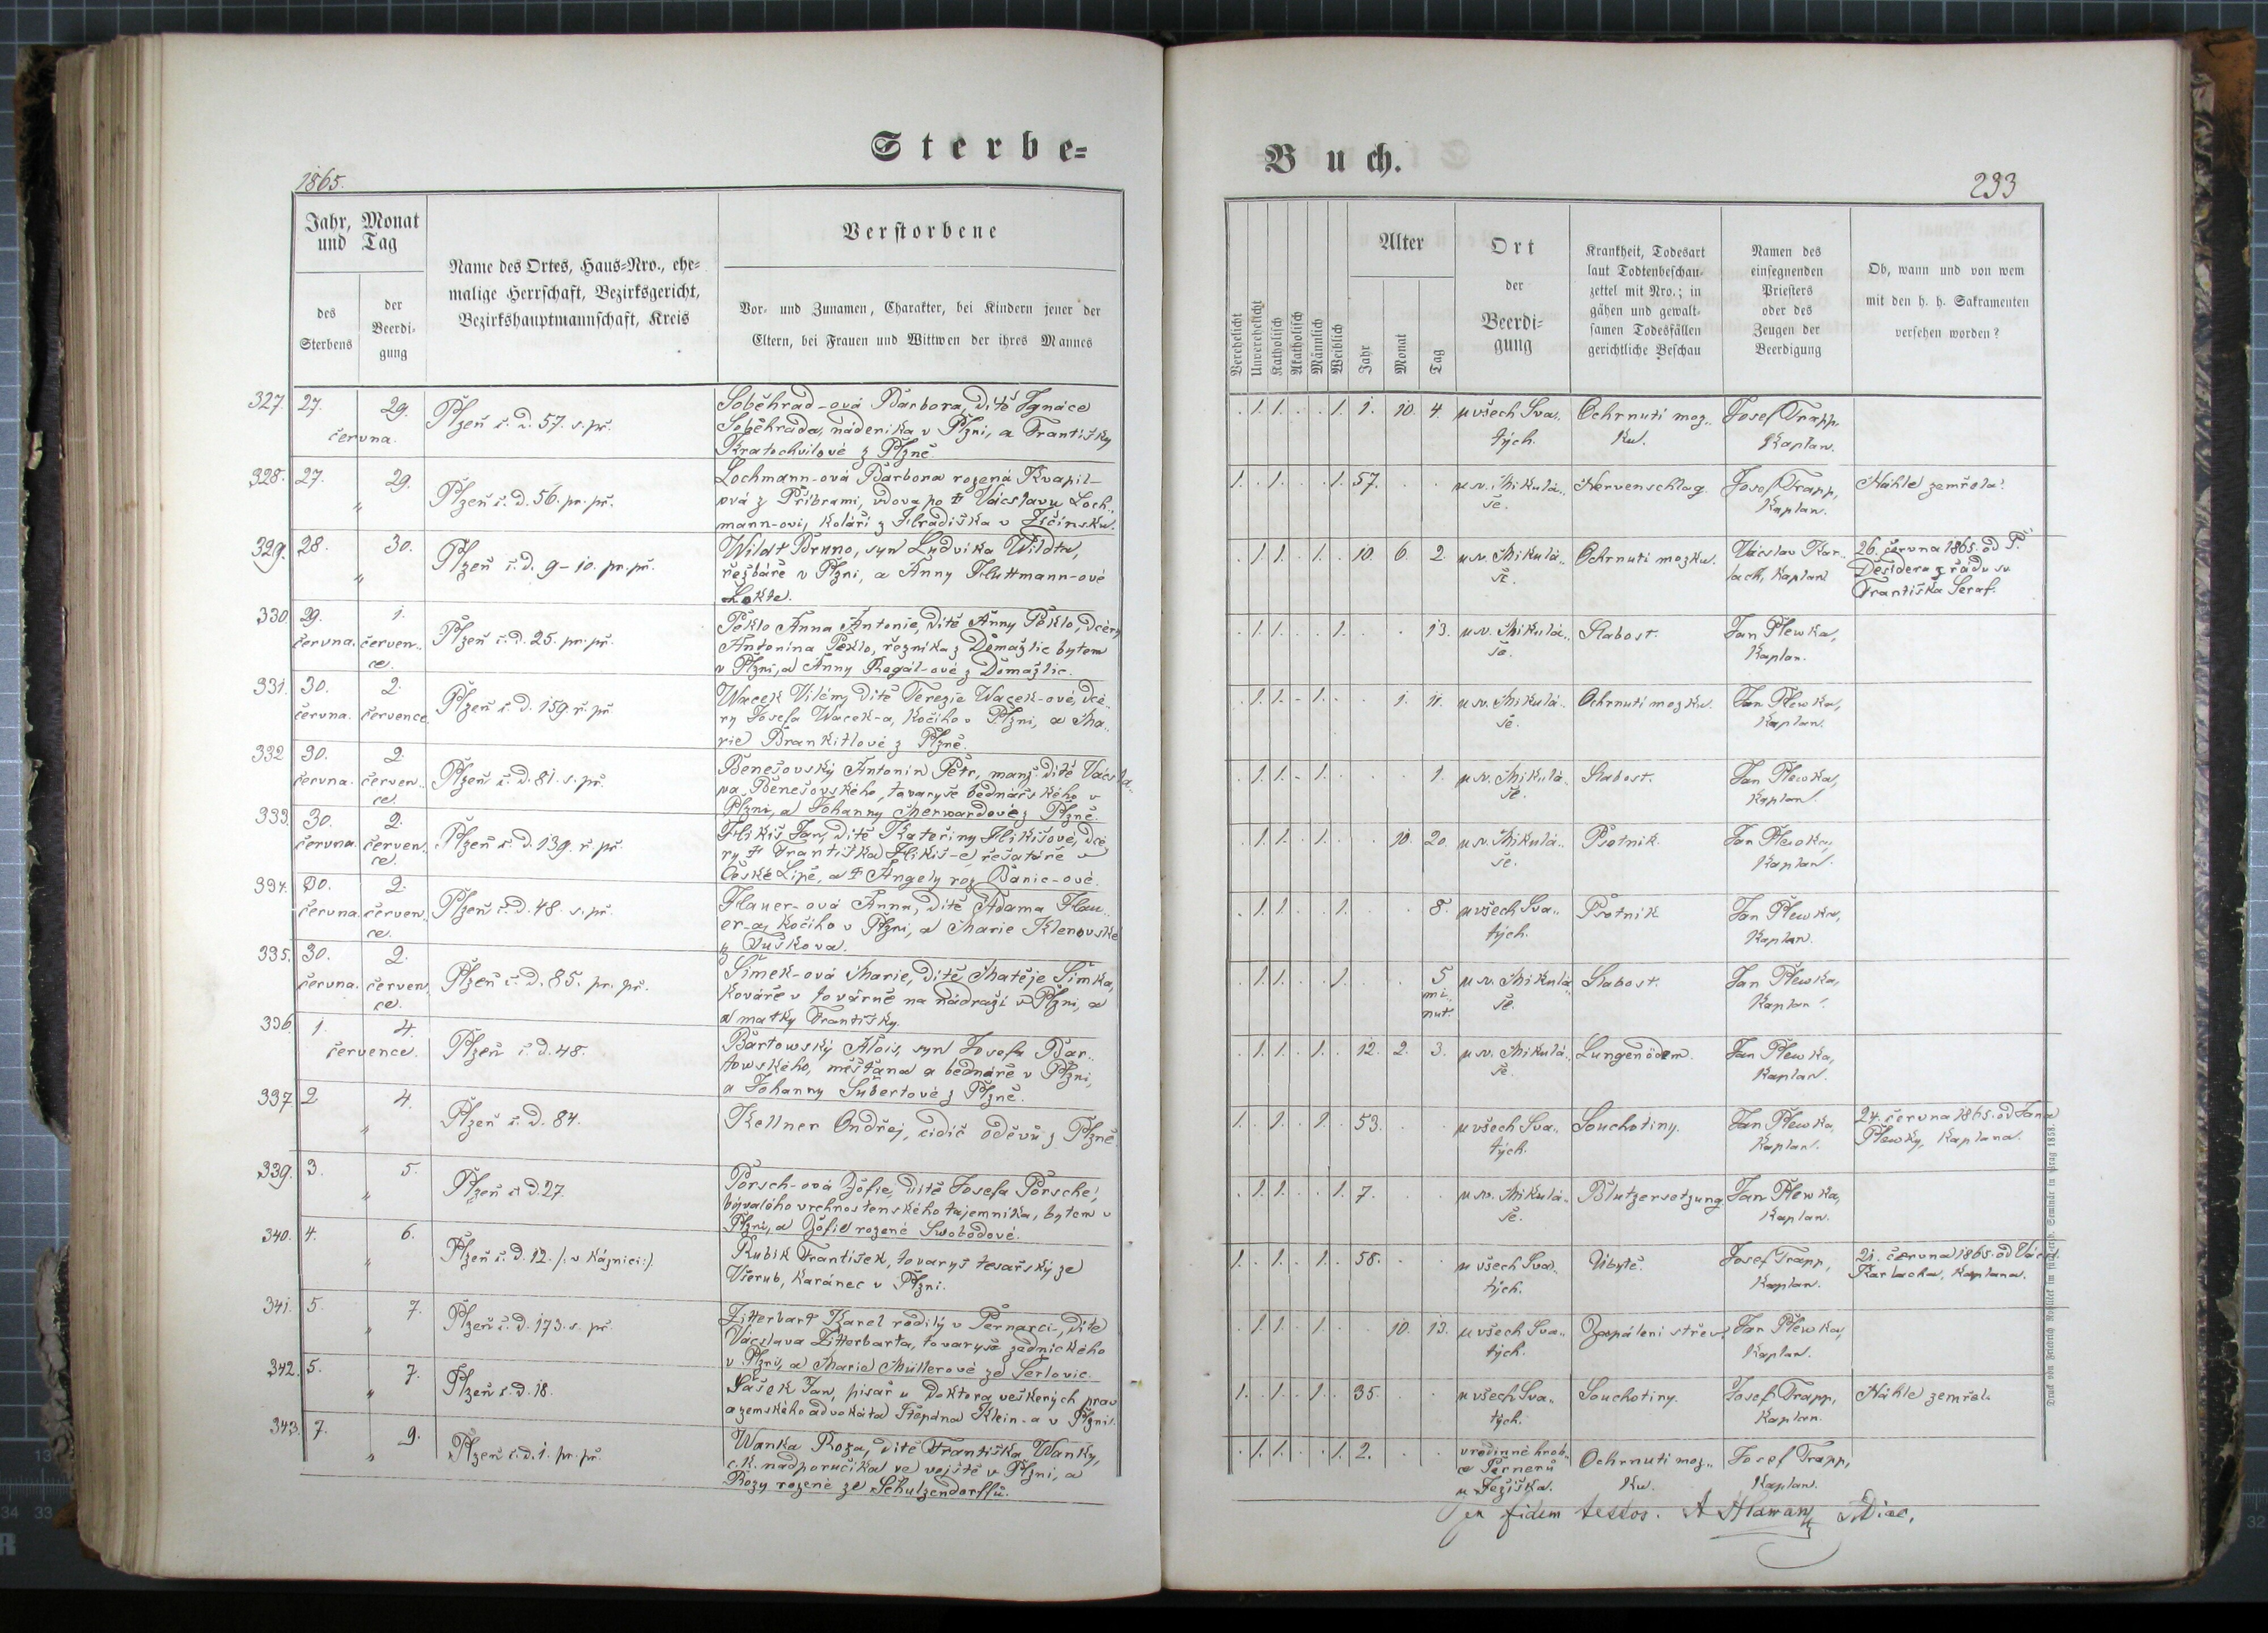 Sterbe=
1865.
Jahr, Monat
und Tag
des
Sterbens
der
Beerdi-
gung
Name des Ortes, Haus=Nro., ehe-
malige Herrschaft, Bezirksgericht,
Bezirkshauptmannschaft, Kreis
Verstorbene
Vor- und Zunamen, Charakter, bei Kindern jener der
Eltern, bei Frauen und Wittwen der ihres Mannes
327. 27. 29.
června.
Plzeň č. d. 57. s. př.
Soběhrad-ová Barbora, dítě Ignáce
Soběhrada, nádeníka v Plzni, a Františky
Kratochvilové z Plzně.
328. 27. 29.
„
Plzeň č. d. 56. pr. př.
Lochmann-ová Barbora rozená Kvapil-
ová z Příbrami, vdova po † Václavu Loch..
mann-ovi, koláři z Hradiška v Jičínsku.
329. 28. 30.
„
Plzeň č. d. 9-10. pr. př.
Wildt Bruno, syn Ludvika Wildta,
řezbáře v Plzni, a Anny Huttmann-ové
Lokte.
330. 29. 1.
června. červen..
ce.
Plzeň č. d. 25. pr. př.
Peklo Anna Antonie, dítě Anny Peklo, dcery
Antonína Peklo, řezníka z Domažlic bytem
v Plzni, a Anny Rogál-ové z Domažlic.
331. 30. 2.
června. července.
Plzeň č. d. 159. ř. př.
Wacek Vilém, dítě Terezie Wacek-ové, dce..
ry Josefa Wacek-a, kočího v Plzni, a Ma..
rie Brankitlové z Plzně.
332 30. 2.
června. červen..
ce.
Plzeň č. d. 81. s. př.
Benešovský Antonín Petr, manž. dítě Vácsla..
va Benešovského, tovaryše bednářského v
Plzni, a Johanny Merwardové z Plzně.
333. 30. 2.
června. červen..
ce.
Plzeň č. d. 139. ř. př.
Hlikiš Jan, dítě Kateřiny Hlikišové, dce
ry † Františka Hlikiš-e, řešatáře v
České Lípě, a † Angely roz. Banic-ové.
334. 30. 2.
června. červen..
ce.
Plzeň č. d. 48. s. př.
Hauer-ová Anna, dítě Adama Hau..
er-a, kočího v Plzni, a Marie Klenovské
z Tuškova.
335. 30. 2.
června. červen..
ce.
Plzeň č. d. 85. pr. př.
Šimek-ová Marie, dítě Matěje Šimka,
kováře v továrně na nádraží v Plzni, a
a matky Františky.
336. 1. 4.
července.
Plzeň č. d. 48.
Bartowský Alois, syn Josefa Bar..
towského, měšťana a bednáře v Plzni,
a Johanny Šubertové z Plzně.
337 2 4.
„
Plzeň č. d. 84.
Kellner Ondřej, cidič oděvů z Plzně
339. 3. 5.
„
Plzeň č. d. 27.
Porsch-ová Žofie, dítě Josefa Porsche,
bývalého vrchnostenského tajemníka, bytem v
Plzni, a Žofie rozené Swobodové.
340. 4. 6.
„
Plzeň č. d. 12. /: v káznici :/
Kubik František, tovaryš tesařský ze
Všerub, káranec v Plzni.
341. 5. 7.
„
Plzeň č. d. 173. s. př.
Zitterbart Karel rodilý v Pernarci, dítě
Vácslava Zitterbarta, tovaryše zednického
v Plzni, a Marie Müllerové ze Serlovic.
342. 5. 7.
„
Plzeň č. d. 18.
Šašek Jan, písař u doktora veškerých prav
a zemského advokáta Štěpána Klein-a v Plzni.
343. 7. 9.
„
Plzeň č. d. 1. pr. př.
Wanka Roza, dítě Františka Wanky,
c. k. nadporučíka ve vojště v Plzni, a
Rozy rozené ze Schulzendorffů.
Buch.
233
Verehelicht
Unverehelicht
Katholisch
Akatholisch
Männlich
Weiblich
Alter
Jahr
Monat
Tag
Ort
der
Beerdi-
gung
Krankheit, Todesart
laut Todtenbeschau-
zettel mit Nro.; in
gähen und gewalt-
samen Todesfällen
gerichtliche Beschau
Namen des
einsegnenden
Priesters
oder des
Zeugen der
Beerdigung
Ob, wann und von wem
mit den h. h. Sakramenten
versehen worden?
. 1. 1. . . 1. 1. 10. 4. u všech Sva.. Ochrnutí moz.. Josef Trapp,
tých. ku. Kaplan.
1. . 1. . . 1. 57. . . u sv. Mikulá.. Nervenschlag. Josef Trapp, Náhle zemřela.
še. Kaplan.
. 1. 1. . 1. . 10. 6. 2. u sv. Mikulá.. Ochrnutí mozku. Václav Kar.. 26. června 1865. od P.
še. lach, Kaplan. Desidera z řádu sv.
Františka Seraf.
. 1. 1. . . 1. . . 13. u sv. Mikulá.. Slabost. Jan Plewka,
še. Kaplan.
. 1. 1. - 1. . . 1. 11. u sv. Mikulá.. Ochrnutí mozku. Jan Plewka,
še. Kaplan.
. 1. 1. - 1. . . . 1. u sv. Mikulá.. Slabost. Jan Plewka,
še. Kaplan.
. 1. 1. . 1. . . 10. 20. u sv. Mikulá.. Psotník. Jan Plewka,
še. Kaplan.
. 1. 1. . . 1. . . 8. u všech Sva.. Psotník Jan Plewka,
tých. Kaplan.
. 1. 1. . . 1. . . 5 u sv. Mikulá.. Slabost. Jan Plewka,
mi.. še. Kaplan.
nut.
. 1. 1. . 1. . 12. 2. 3. u sv. Mikulá.. Lungenödem. Jan Plewka,
še. Kaplan.
1. . 1. . 1. . 53. . . u všech Sva.. Souchotiny. Jan Plewka, 24. června 1865. od Jana
tých. Kaplan. Plewky, Kaplana.
. 1. 1. . . 1. 7. . . u sv. Mikulá.. Blutzersetzung. Jan Plewka,
še. Kaplan.
1. . 1. . 1. . 58. . . u všech Sva.. Úbytě. Josef Trapp, 21. června 1865. od Vácsl.
tých. Kaplan. Karlacha, Kaplana.
. 1. 1. . 1. . . 10. 13. u všech Sva.. Zapálení střev. Jan Plewka,
tých. Kaplan.
1. . 1. . 1. . 35. . . u všech Sva.. Souchotiny. Josef Trapp, Náhle zemřel.
tých. Kaplan.
. 1. 1. . . 1. 2. . . v rodinné hrob.. Ochrnutí moz.. Josef Trapp,
ce Pernerů ku. Kaplan.
u Ježíška.
in fidem testor.
Druck von Friedrich Rohliček im fürsterzb. Seminär in Prag 1858.